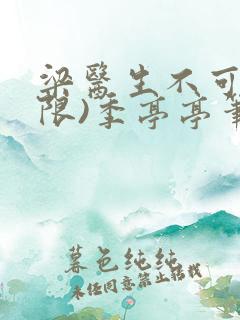 梁医生不可
限)季亭亭
暮色纯纯
未经同意禁止转载